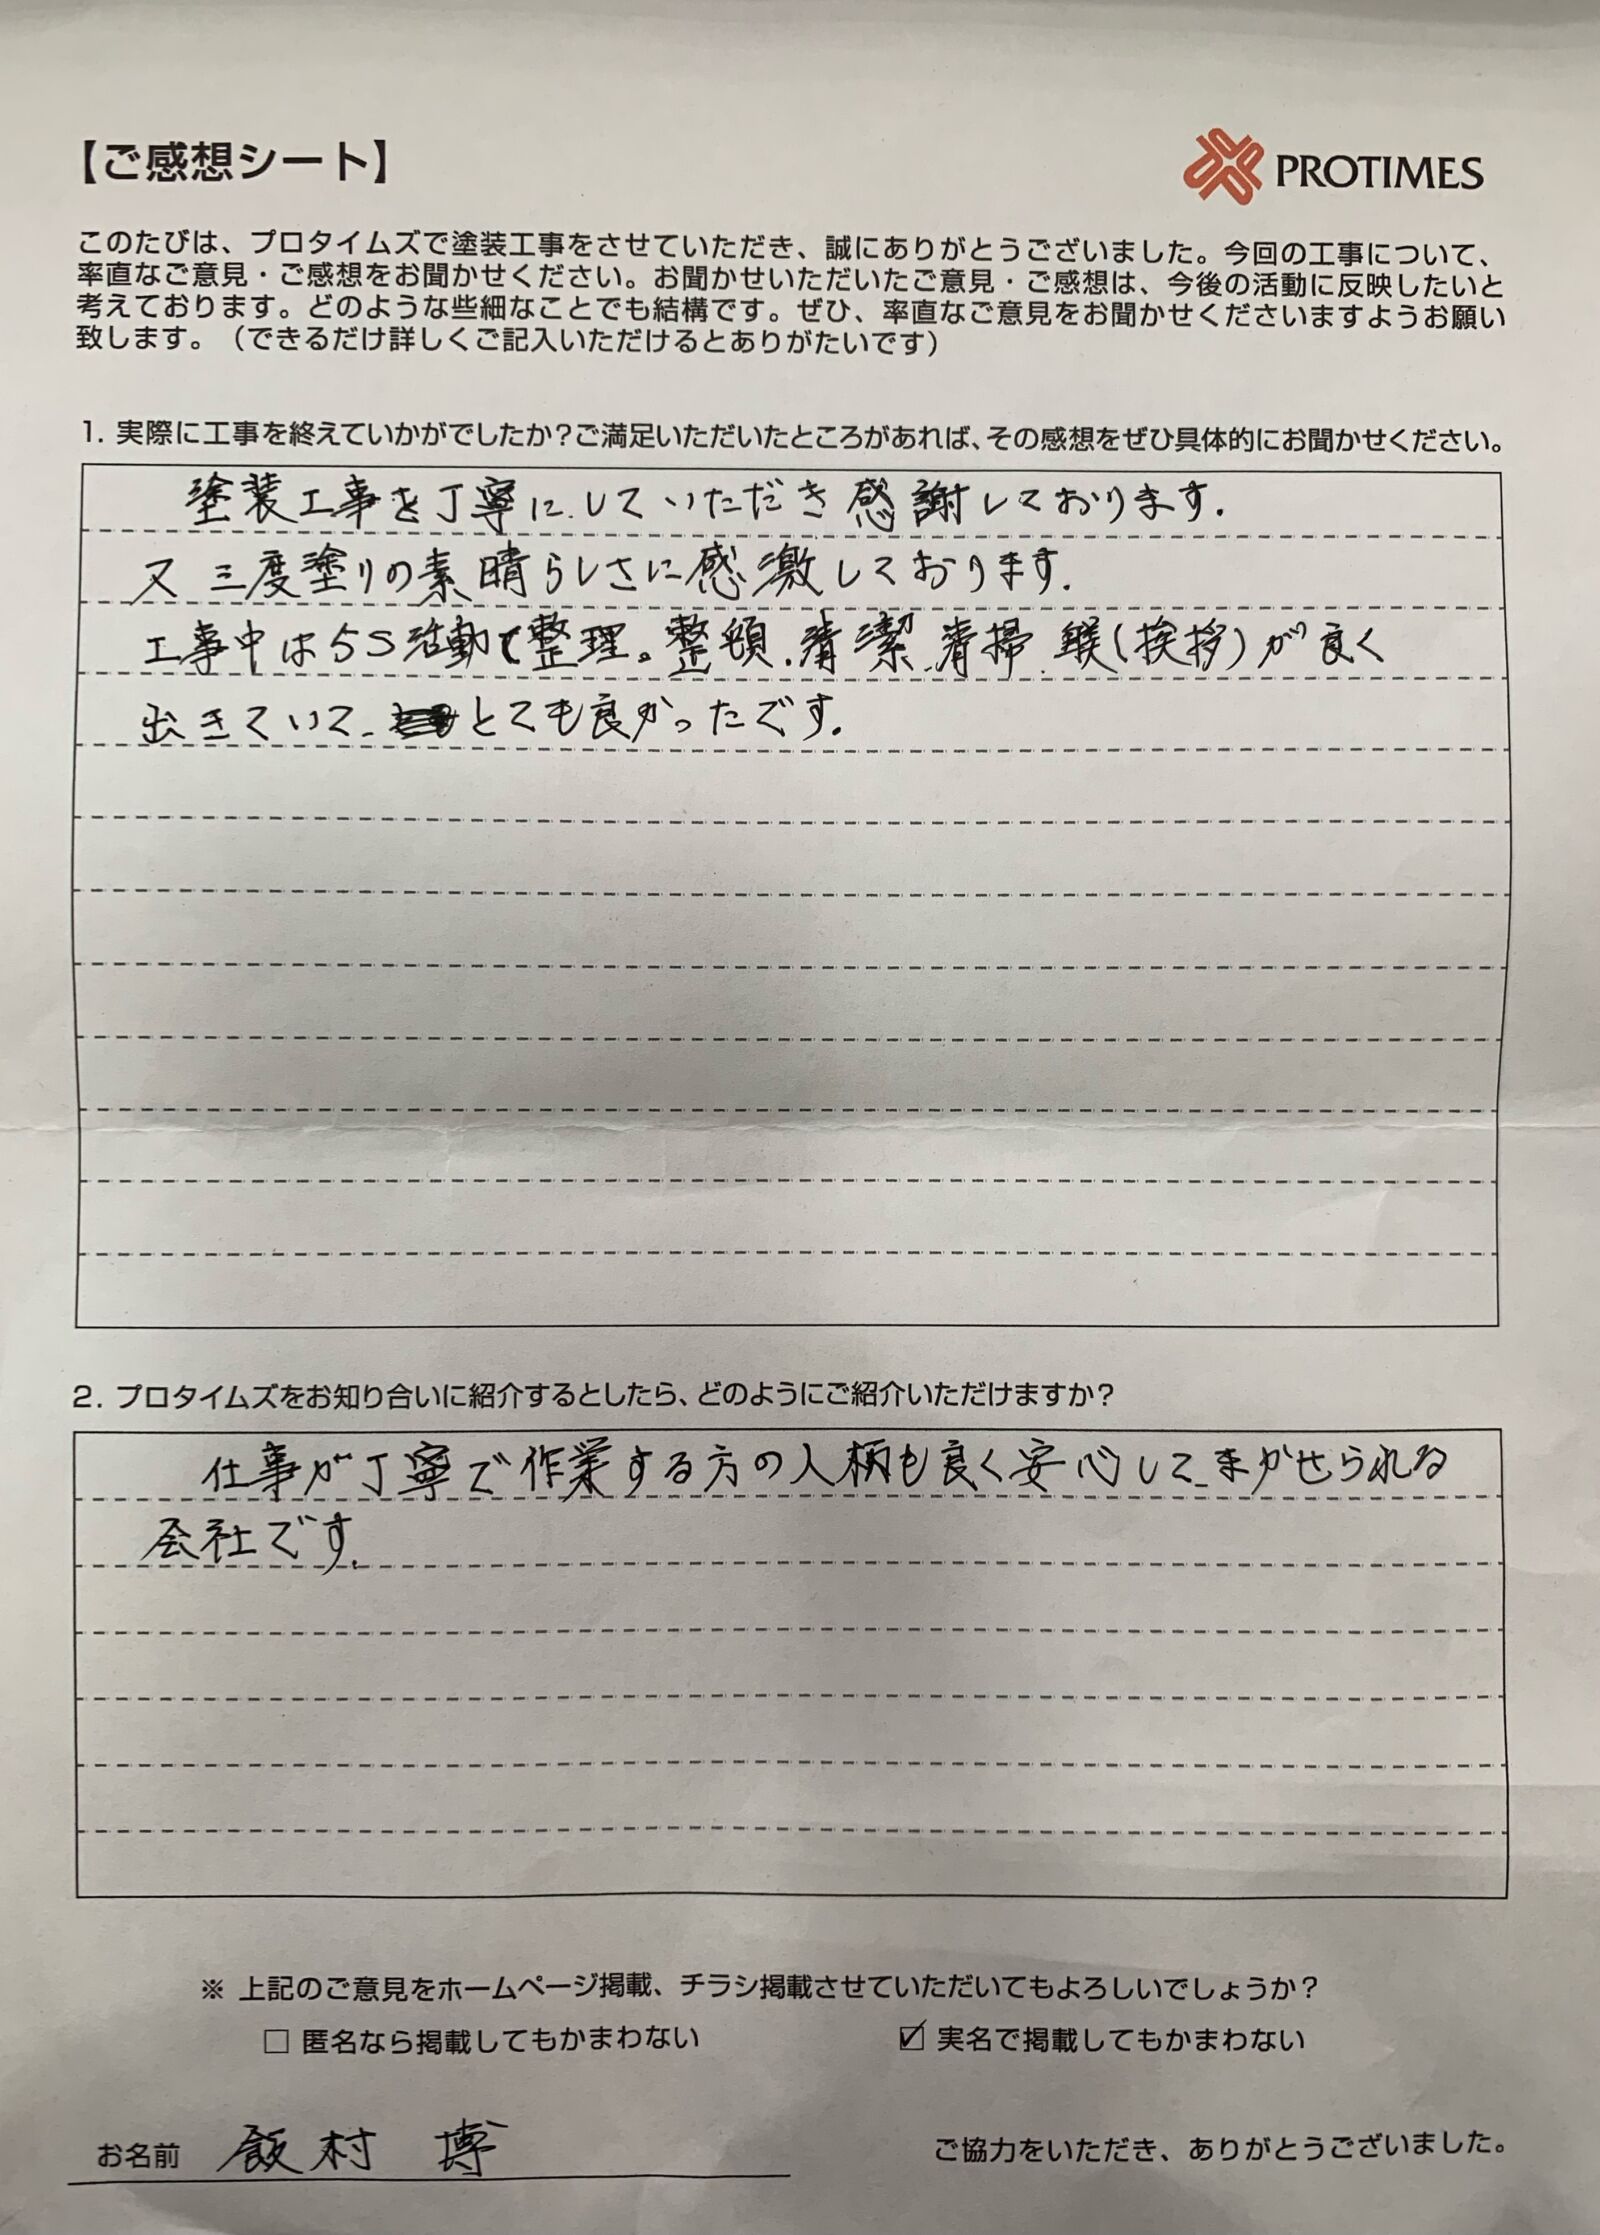 【ご感想シート】
PROTIMES
このたびは、プロタイムズで塗装工事をさせていただき、誠にありがとうございました。今回の工事について、
率直なご意見・ご感想をお聞かせください。お聞かせいただいたご意見・ご感想は、今後の活動に反映したいと
考えております。どのような些細なことでも結構です。ぜひ、率直なご意見をお聞かせくださいますようお願い
致します。（できるだけ詳しくご記入いただけるとありがたいです）
1. 実際に工事を終えていかがでしたか？ご満足いただいたところがあれば、その感想をぜひ具体的にお聞かせください。
塗装工事を丁寧にしていただき感謝しております.
又 三度塗りの素晴らしさに感激しております.
工事中は5S活動で整理。整頓.清潔.清掃 (挨拶)が良く
出きていて とても良かったです.
2. プロタイムズをお知り合いに紹介するとしたら、どのようにご紹介いただけますか？
仕事が丁寧で作業する方の人柄も良く安心してまかせられる
会社です.
※ 上記のご意見をホームページ掲載、チラシ掲載させていただいてもよろしいでしょうか？
□ 匿名なら掲載してもかまわない ☑ 実名で掲載してもかまわない
お名前 飯村 博
ご協力をいただき、ありがとうございました。